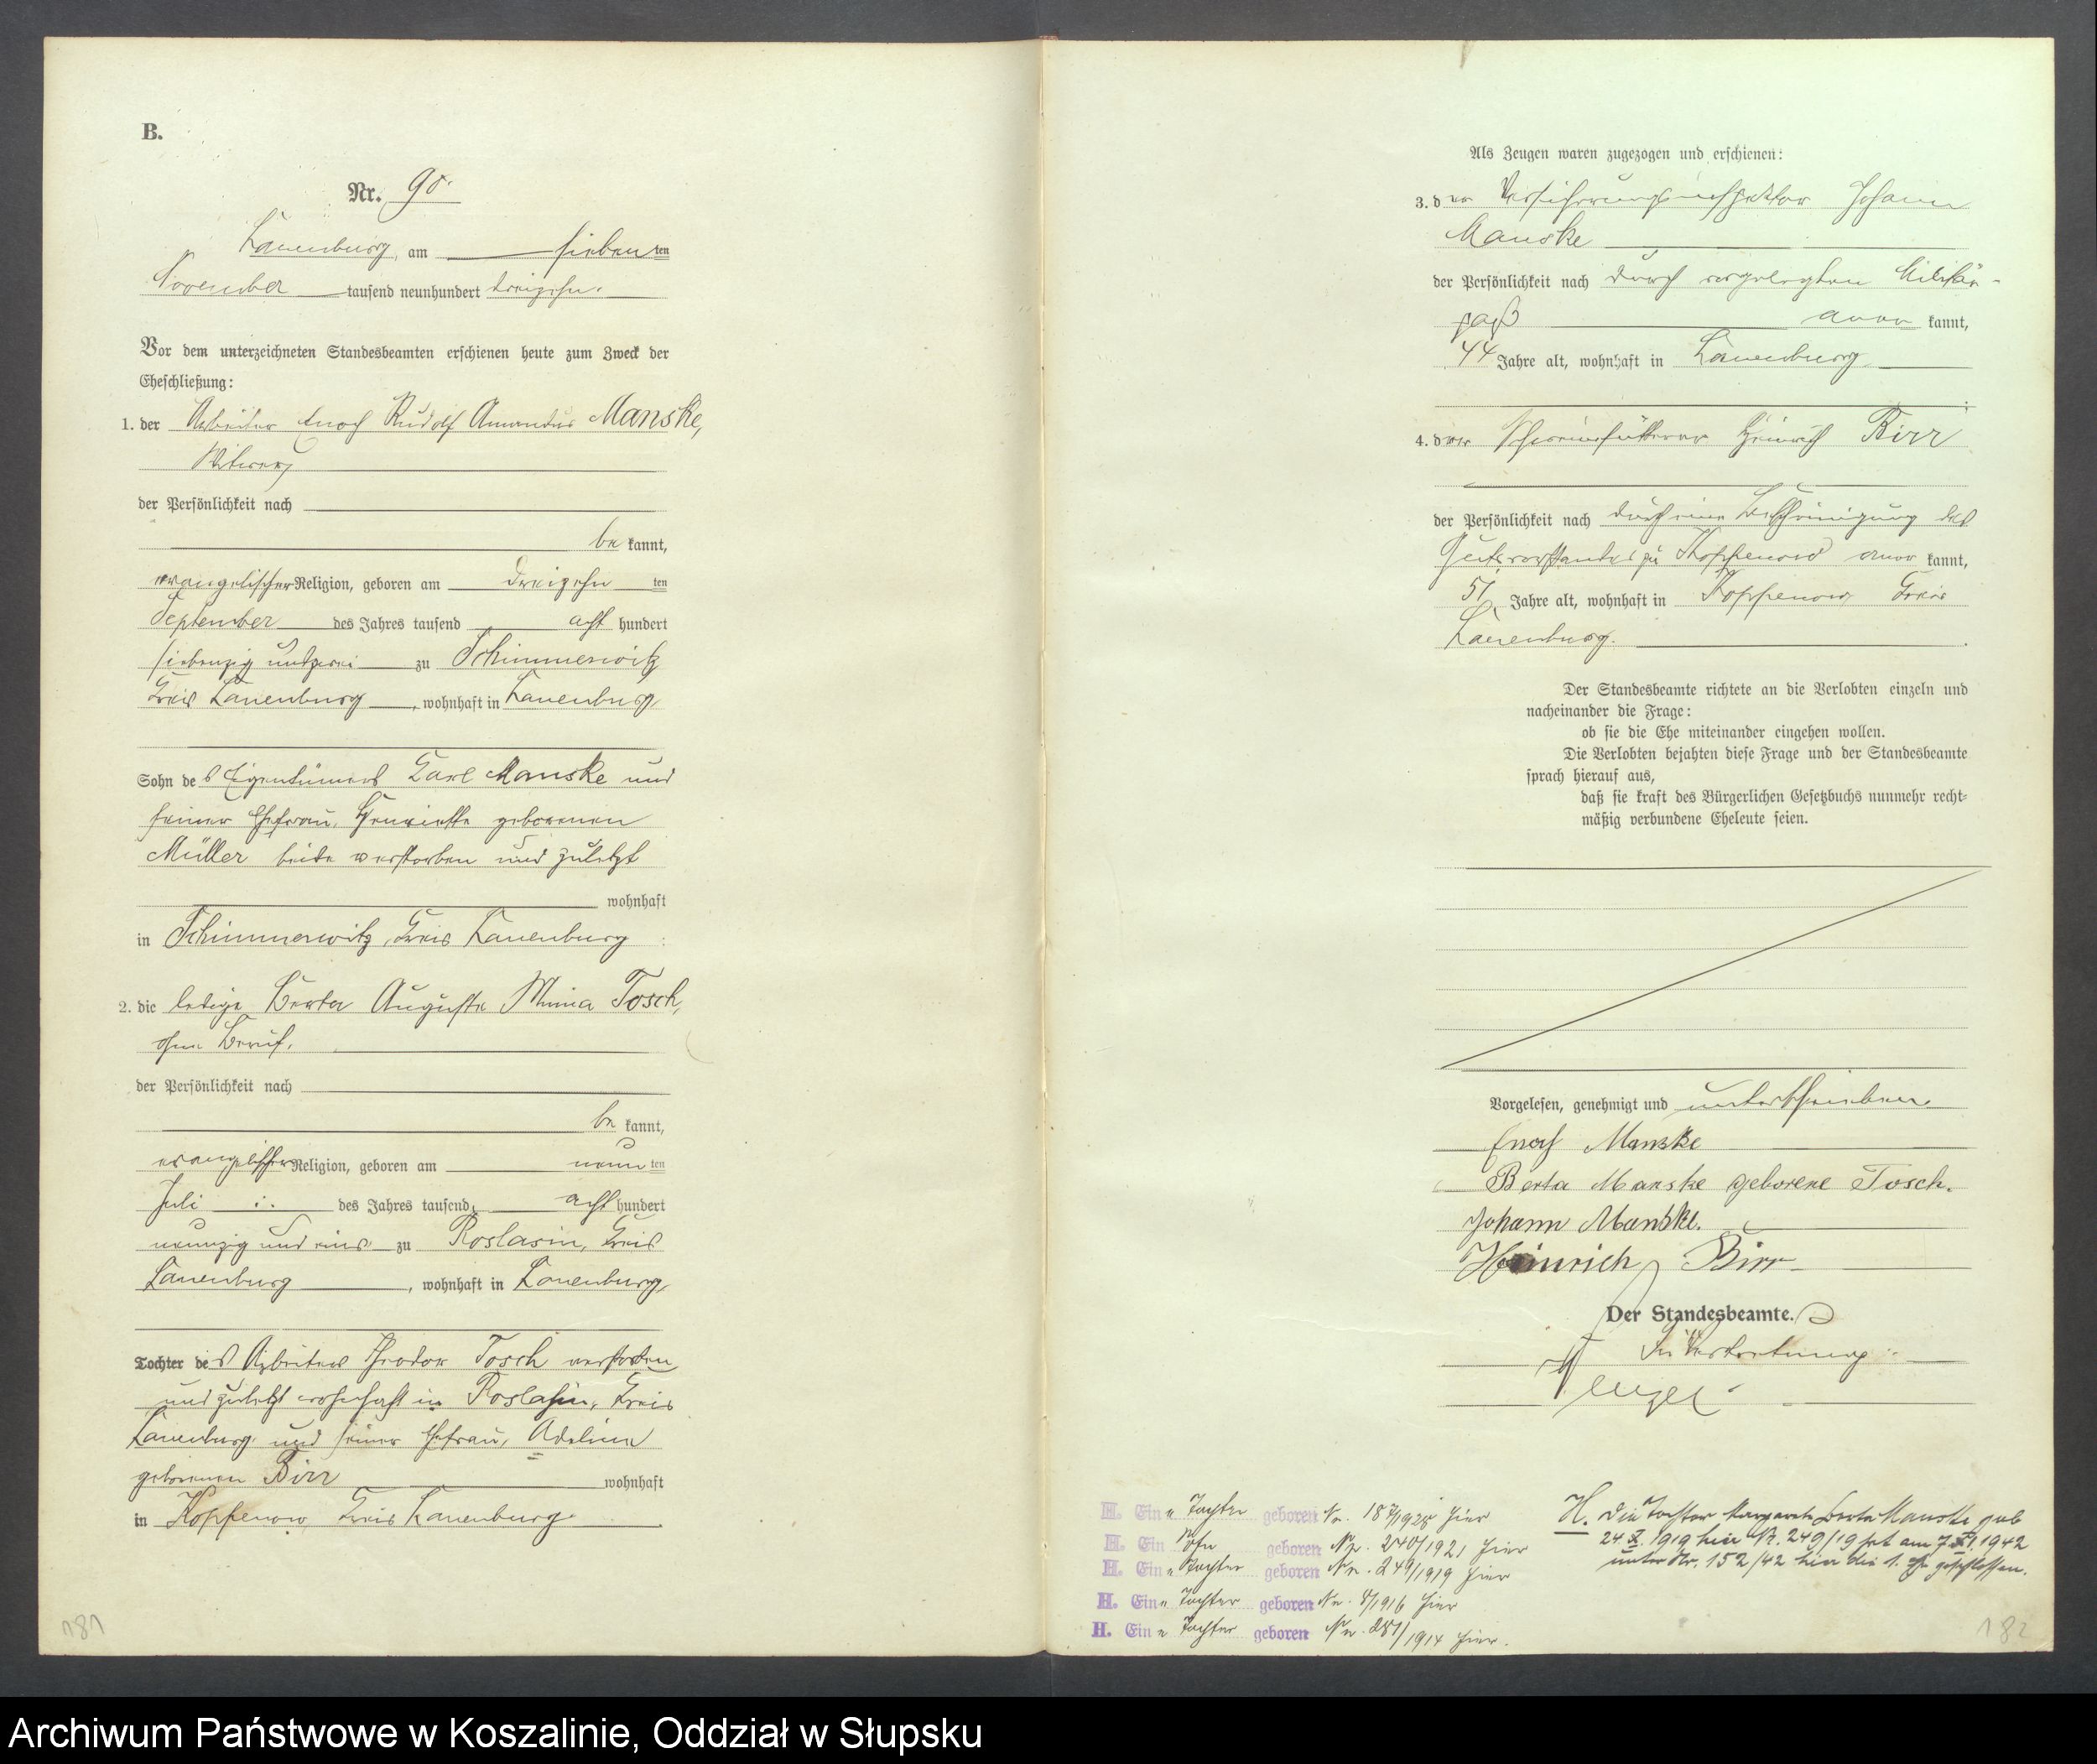 B.
Nr. 90.
Lauenburg, am sieben ten
November tausend neunhundert dreizehn.
Vor dem unterzeichneten Standesbeamten erschienen heute zum Zweck der
Eheschließung:
1. der Arbeiter Enoch Rudolf Amandus Manske,
Witwer,
der Persönlichkeit nach
be kannt,
evangelischer Religion, geboren am dreizehn ten
September des Jahres tausend acht hundert
siebenzig und zwei zu Schimmerwitz
Kreis Lauenburg, wohnhaft in Lauenburg
Sohn des Eigentümers Carl Manske und
seiner Ehefrau, Henriette geborenen
Müller beide verstorben und zuletzt
wohnhaft
in Schimmerwitz, Kreis Lauenburg
2. die ledige Berta Auguste Minna Tosch,
ohne Beruf.
der Persönlichkeit nach
be kannt,
evangelischer Religion, geboren am neun ten
Juli des Jahres tausend acht hundert
neunzig und eins zu Roslasin, Kreis
Lauenburg, wohnhaft in Lauenburg,
Tochter des Arbeiters Theodor Tosch verstorben
und zuletzt wohnhaft in Roslasin, Kreis
Lauenburg und seiner Ehefrau, Adeline
geborenen Birr wohnhaft
in Koppenow, Kreis Lauenburg.
181
Als Zeugen waren zugezogen und erschienen:
3. der Versicherungsinspektor Johann
Manske
der Persönlichkeit nach durch vorgelegten Militär-
paß aner kannt,
44 Jahre alt, wohnhaft in Lauenburg
4. der Schweinefütterer Heinrich Birr
der Persönlichkeit nach durch eine Bescheinigung des
Gutsvorstandes zu Koppenow aner kannt,
51 Jahre alt, wohnhaft in Koppenow Kreis
Lauenburg.
Der Standesbeamte richtete an die Verlobten einzeln und
nacheinander die Frage:
ob sie die Ehe miteinander eingehen wollen.
Die Verlobten bejahten diese Frage und der Standesbeamte
sprach hierauf aus,
daß sie kraft des Bürgerlichen Gesetzbuchs nunmehr recht-
mäßig verbundene Eheleute seien.
Vorgelesen, genehmigt und unterschrieben.
Enoch Manske
Berta Manske geborene Tosch.
Johann Manske.
Heinrich Birr
Der Standesbeamte.
In Vertretung
H. Eine Tochter geboren Nr. hier
H. Ein Sohn geboren Nr. 240/1921 hier
H. Eine Tochter geboren Nr. 249/1919 hier
H. Eine Tochter geboren Nr. 4/1916 hier
H. Eine Tochter geboren Nr. 281/1914 hier.
H. Die Tochter Margarete Berta Manske geb
24.X.1919 hier Nr. 249/19 hat am 7.XI.1942
unter Nr. 152/42 hier die 1. Ehe geschlossen.
182
Archiwum Państwowe w Koszalinie, Oddział w Słupsku